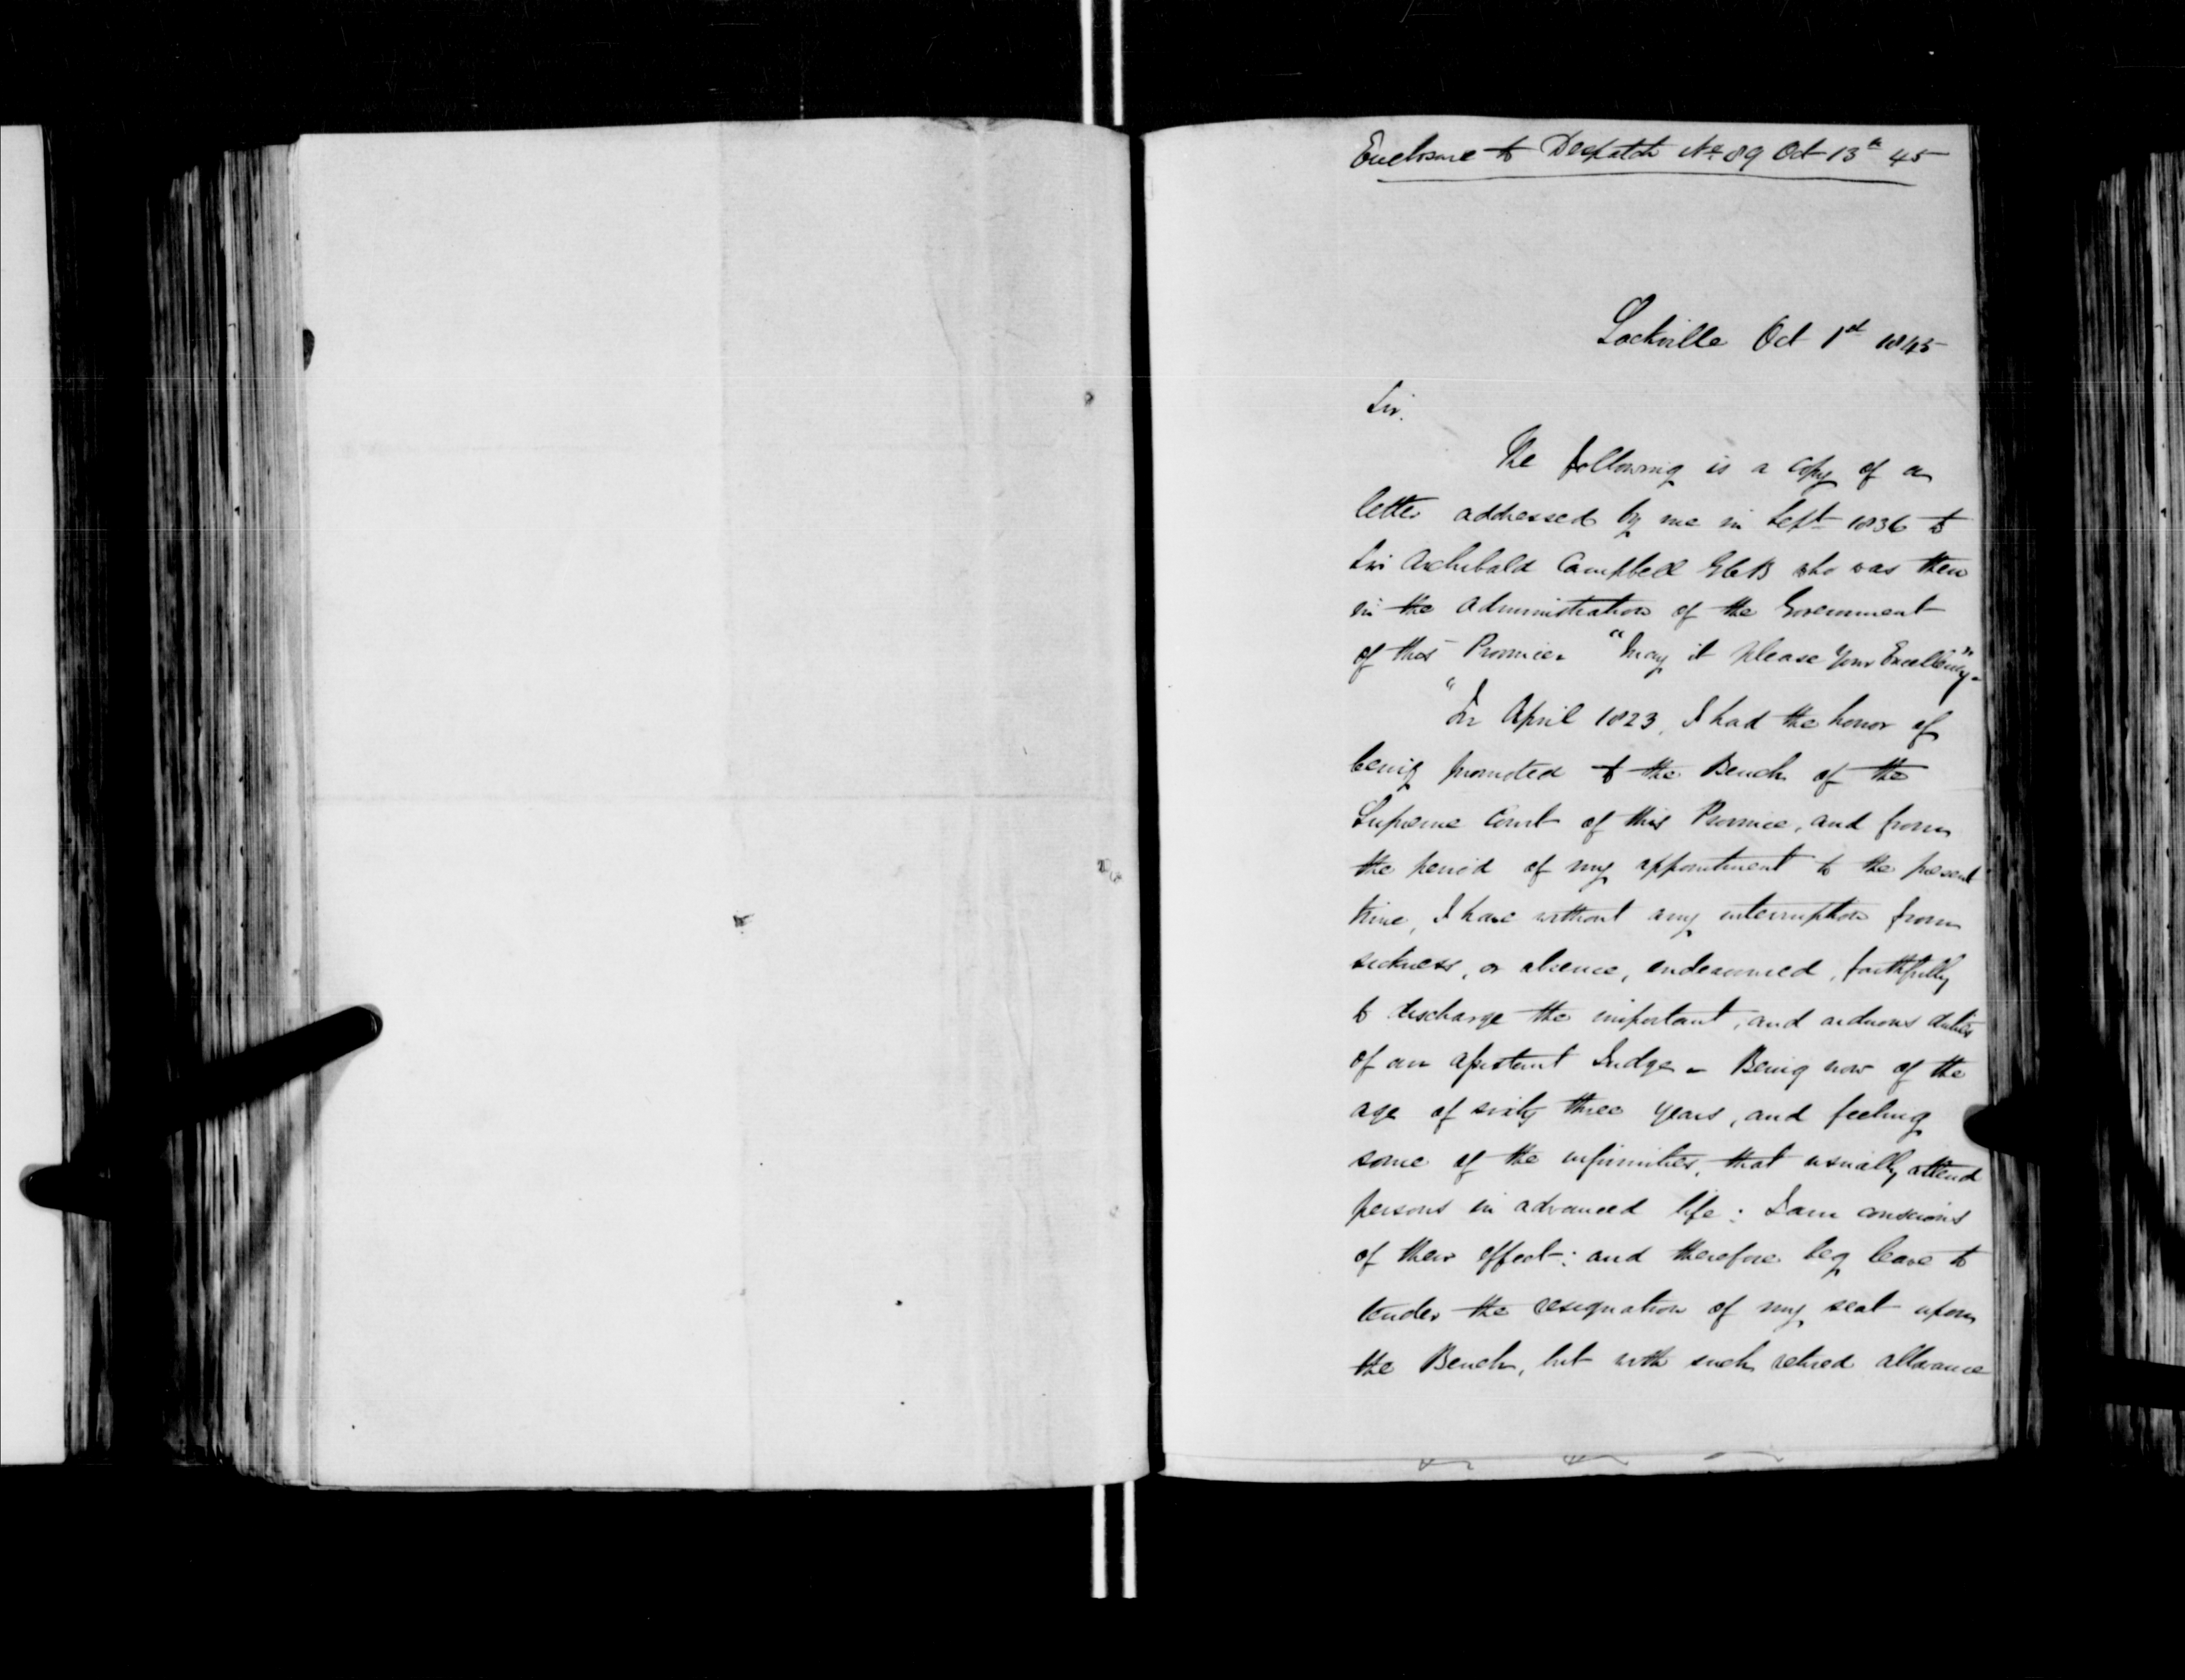 Enclosure to Despatch No. 89 Oct 13th 45
Sackville Oct 1st 1845
Sir.
The following is a copy of a
letter addressed by me in Sept 1836 to
Sir Archibald Campbell GCB who was then
in the Administration of the Government
of this Province. "May it please Your Excellency"-
"In April 1823, I had the honor of
being promoted to the Bench of the
Supreme Court of this Province, and from
the period of my appointment to the present
time, I have without any interruption from
sickness, or absence, endeavoured, faithfully
to discharge the important, and arduous duties
of an assistant Judge - Being now of the
age of sixty three years, and feeling
some of the infirmities, that usually attend
persons in advanced life: I am conscious
of their effect: and therefore beg leave to
tender the resignation of my seat upon
the Bench, but with such retired allowance